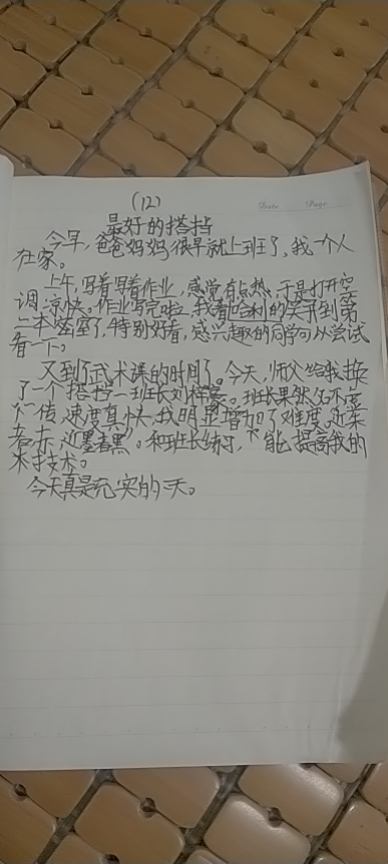 (12)
Date Page
最好的搭挡
今早,爸爸妈妈很早就上班了,我一个人
在家。
上午,写着写着作业,感觉有点热,于是打开空
调,凉快。作业写完啦,我看哈利的关于到第
二本密室了,特别好看,感兴趣的同学可以尝试
看一下。
又到了武术课的时间了。今天,师父给我换
了一个搭挡—班长刘梓。班长果然名不虚
传,速度真快,我明显增加了难度。近朱
者赤,近墨者黑。和班长练习,才能提高我的
术技术。
今天真是充实的一天。